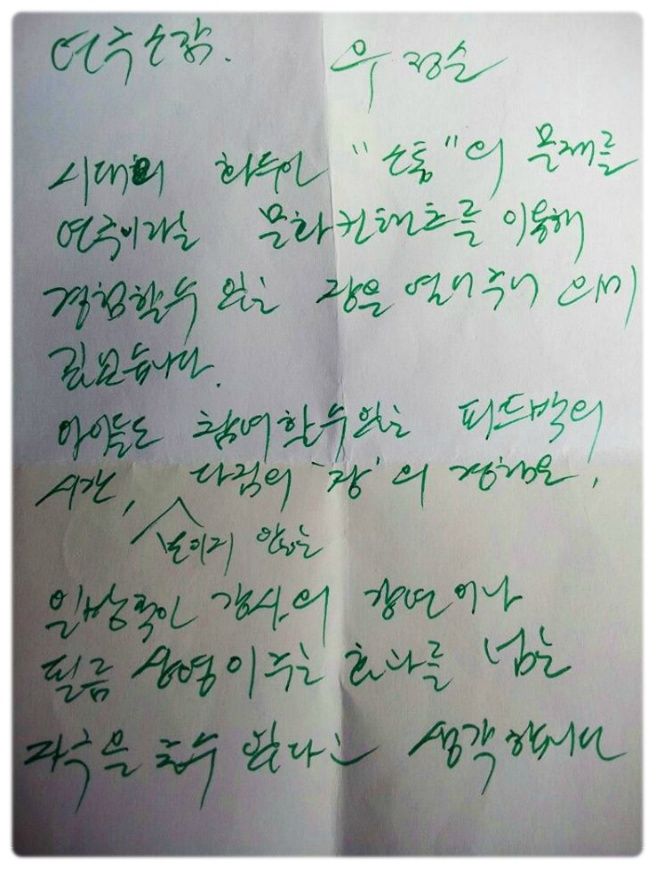 연극소감. 우정순
시대의 화두인 "소통"의 문제를
연극이라는 문화컨텐츠를 이용해
경험할수 있는 장을 열어주니 의미
깊보습니다.
아이들도 참여할수있는 피드백의
시간, 다짐의 '장'의 경험은,
보이지 않는
일방적인 강사의 강연이나
필름 상영이 주는 효과를 넘는
자극을 줄수 있다는 생각합니다